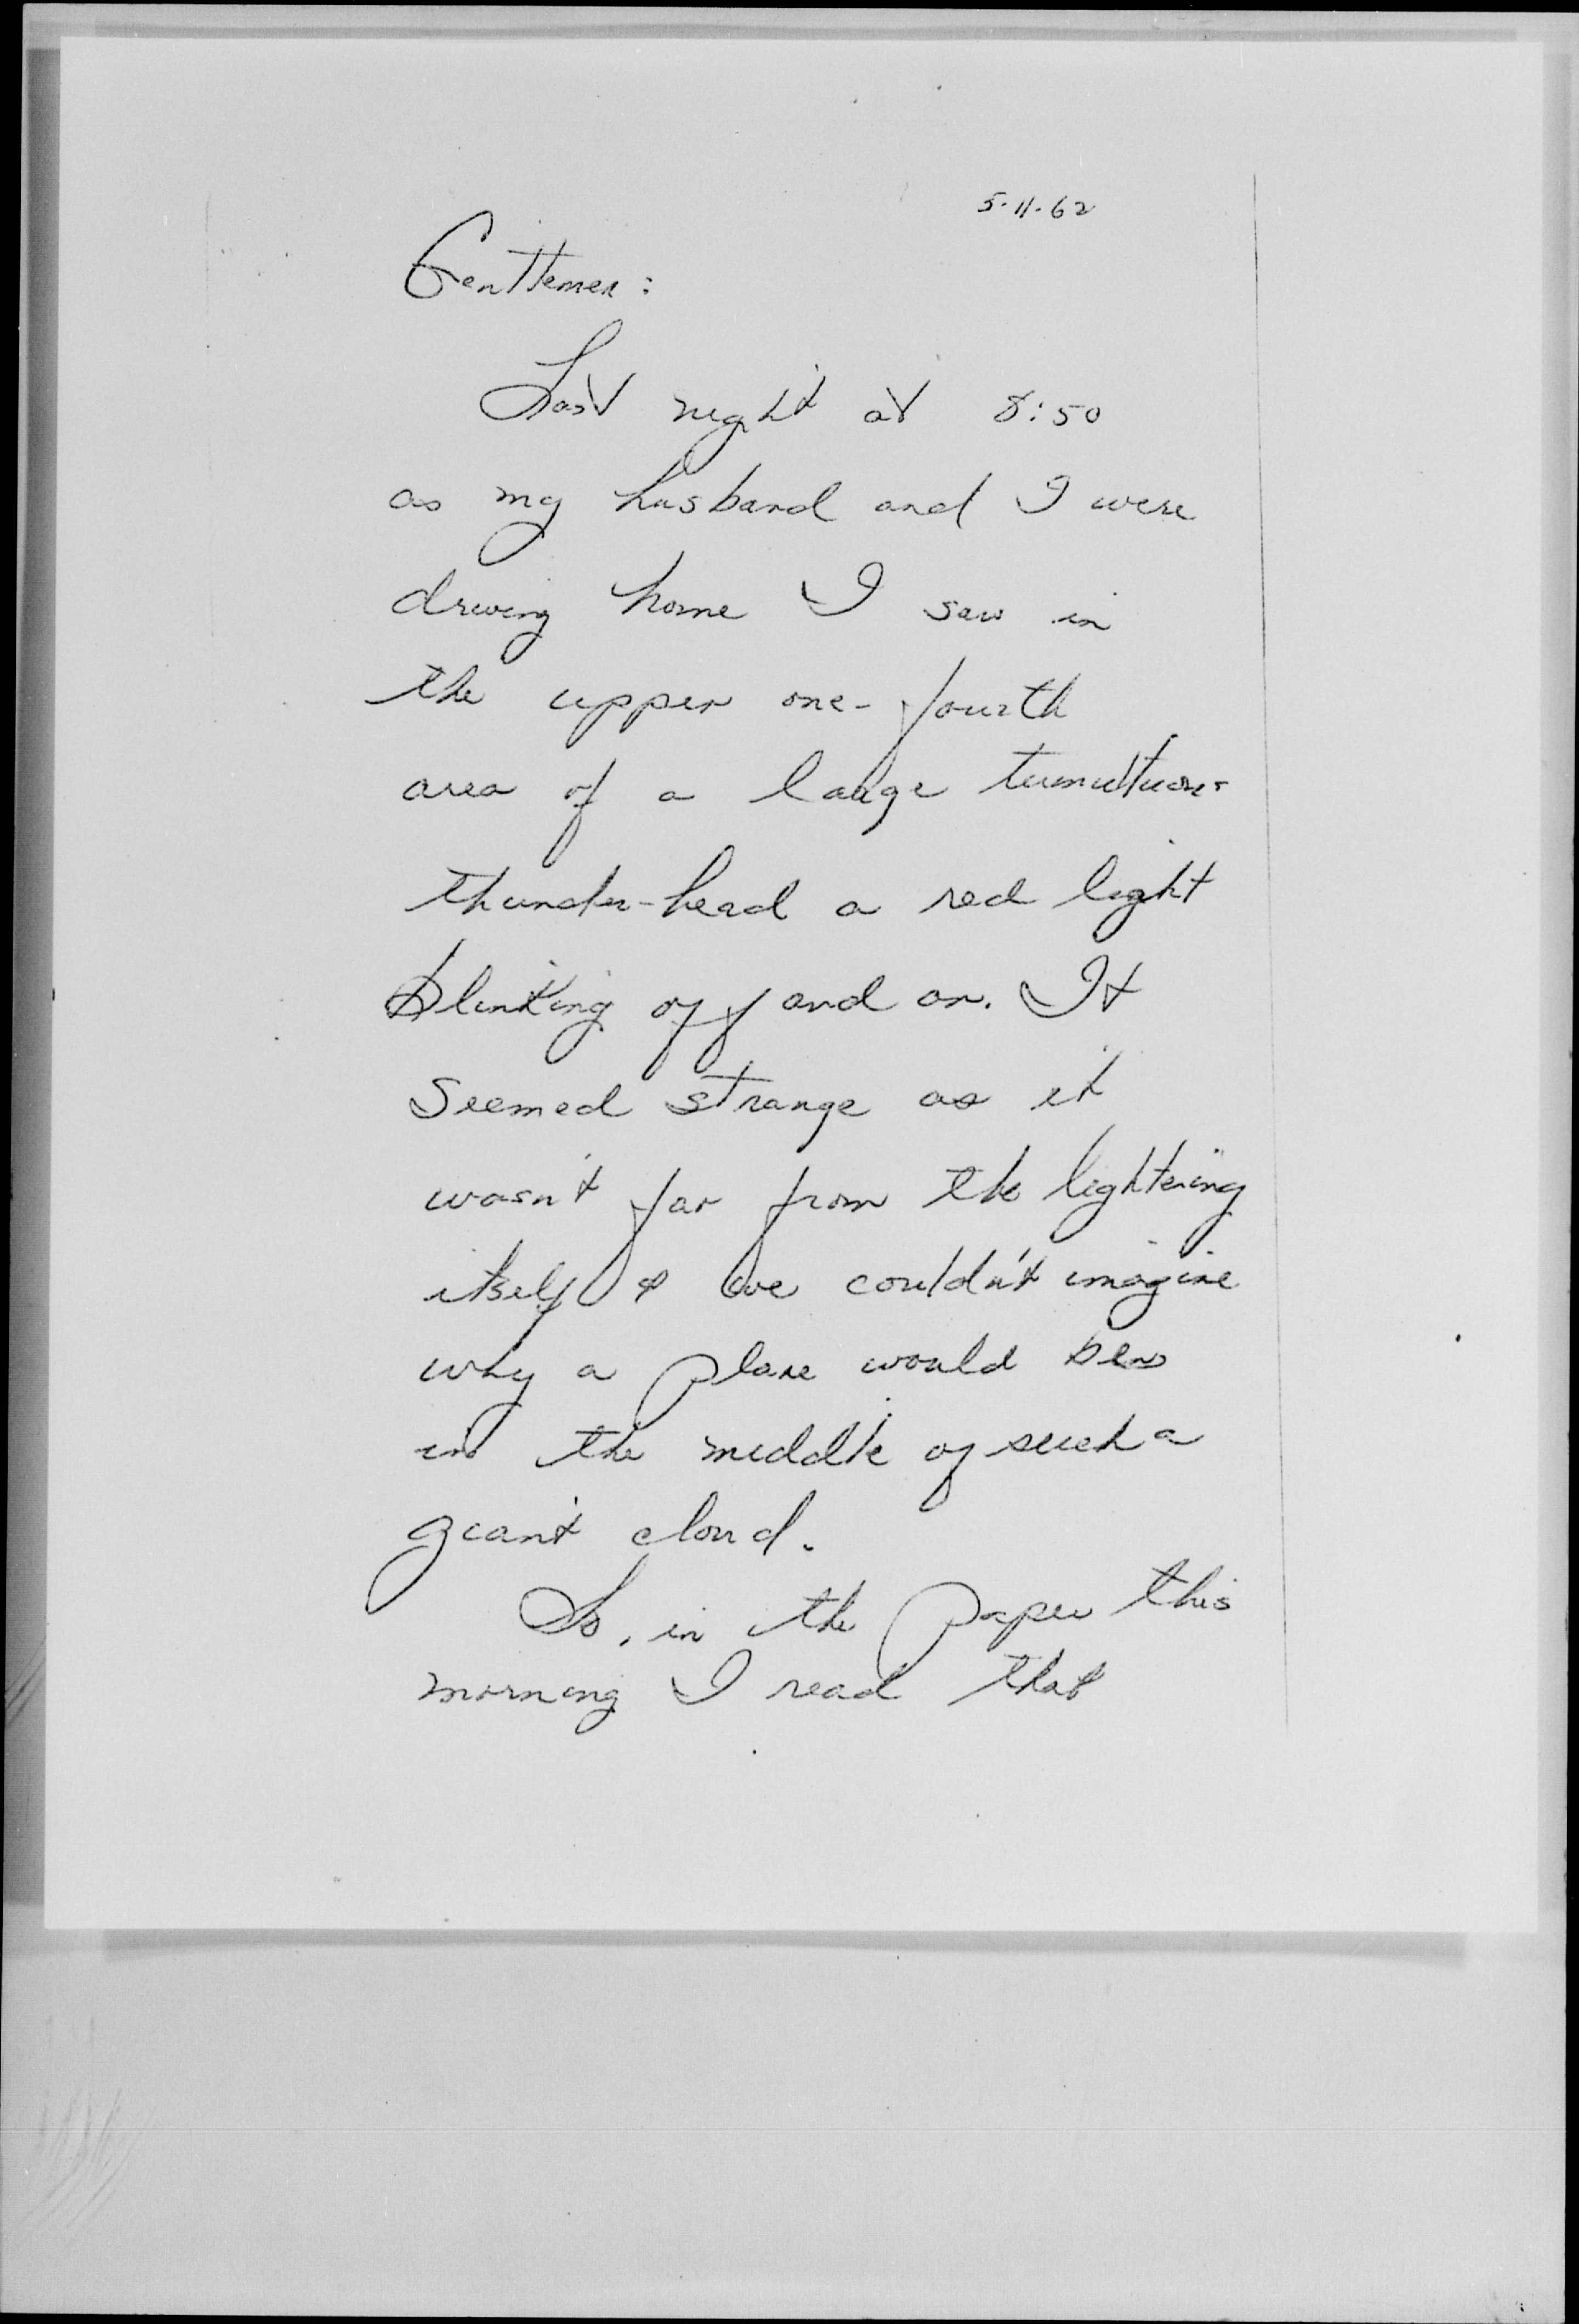 5-11-62
Gentlemen:
Last night at 8:50
as my husband and I were
driving home I saw in
the upper one-fourth
area of a large tumultuous
thunder-head a red light
blinking off and on. It
seemed strange as it
wasn't far from the lightening
itself & we couldn't imagine
why a plane would be
in the middle of such a
giant cloud.
So, in the paper this
morning I read that